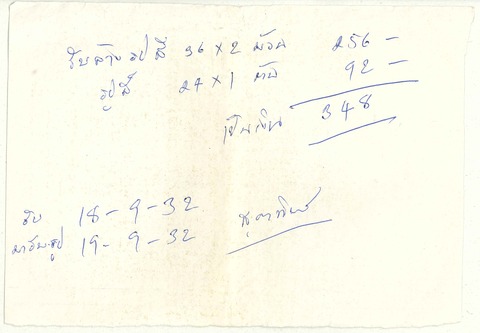 รับล้างรูปสี 36 x 2 ม้วน 256 -
รูปสี 24 x 1 ม้วน 92 -
เป็นเงิน 348
รับ 18 - 9 - 32
มารับรูป 19 - 9 - 32